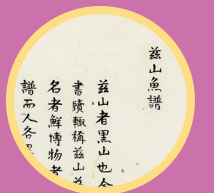 茲山魚譜
茲山者黑山也余
書牘輒稱茲山茲
名者鮮博物者
譜而人各異